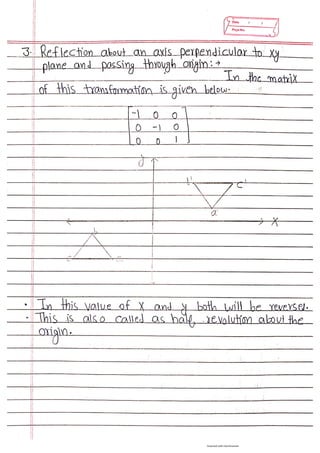 Date
Page No.
3. Reflection about an axis perpendicular to xy
plane and passing through origin :→
In the matrix
of this transformation is given below.
-1 0 0
0 -1 0
0 0 1
y
b' c'
a'
X
b
• In this value of x and y both will be reversed.
• This is also called as half revolution about the
origin.